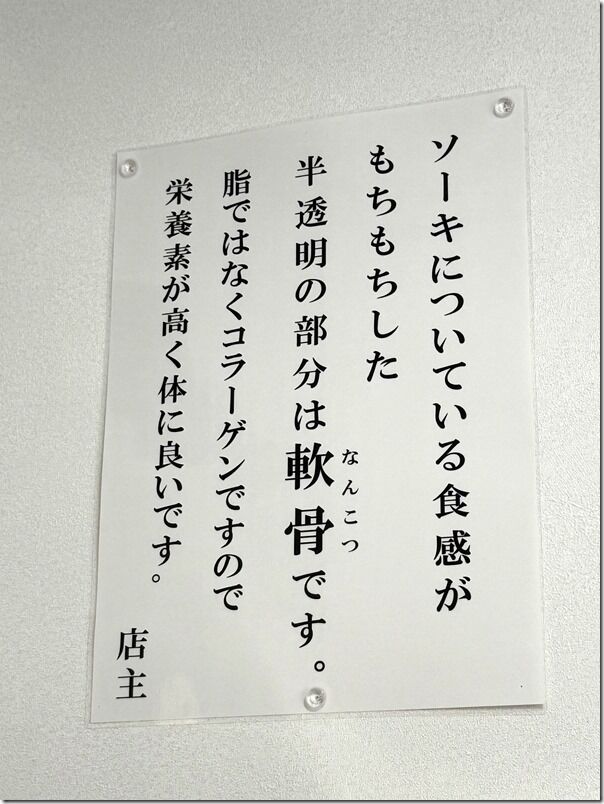 ソーキについている食感が
もちもちした
半透明の部分は軟骨です。
なんこつ
脂ではなくコラーゲンですので
栄養素が高く体に良いです。
店主